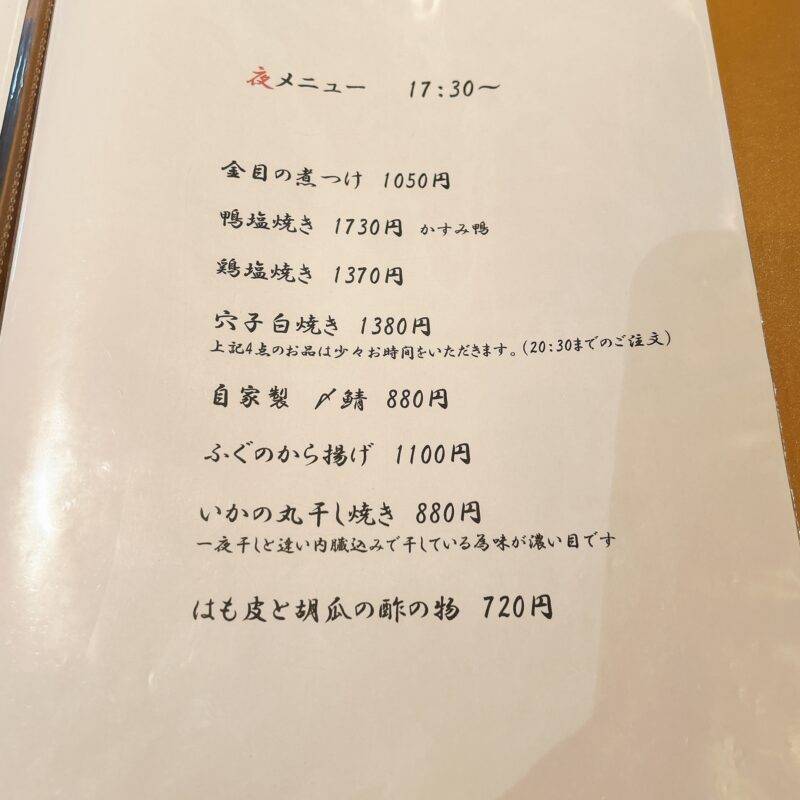 夜メニュー 17:30～
金目の煮つけ 1050円
鴨塩焼き 1730円 かすみ鴨
鶏塩焼き 1370円
穴子白焼き 1380円
上記4点のお品は少々お時間をいただきます。(20:30までのご注文)
自家製 〆鯖 880円
ふぐのから揚げ 1100円
いかの丸干し焼き 880円
一夜干しと違い内臓込みで干している為味が濃い目です
はも皮と胡瓜の酢の物 720円